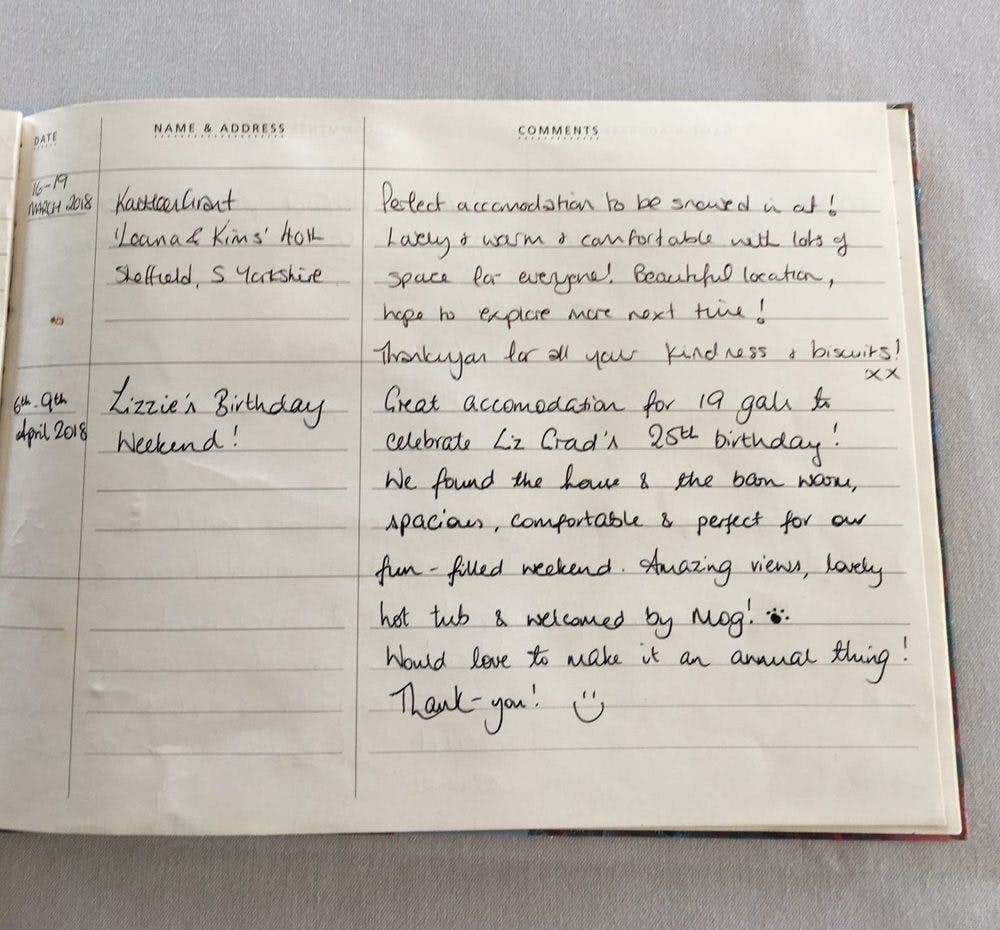 DATE NAME & ADDRESS COMMENTS
16-19
MARCH 2018
Grant Perfect accomodation to be snowed in at!
& Kims' Lovely & warm & comfortable with lots of
Sheffield, S Yorkshire space for everyone! Beautiful location,
hope to explore more next time!
Thankyou for all your kindness & biscuits!
xx
6th-9th Lizzie's Birthday Great accomodation for 19 gals to
April 2018 Weekend! celebrate Liz 25th birthday!
We found the house & the barn warm,
spacious, comfortable & perfect for our
fun-filled weekend. Amazing views, lovely
hot tub & welcomed by Mog!
Would love to make it an annual thing!
Thank-you!